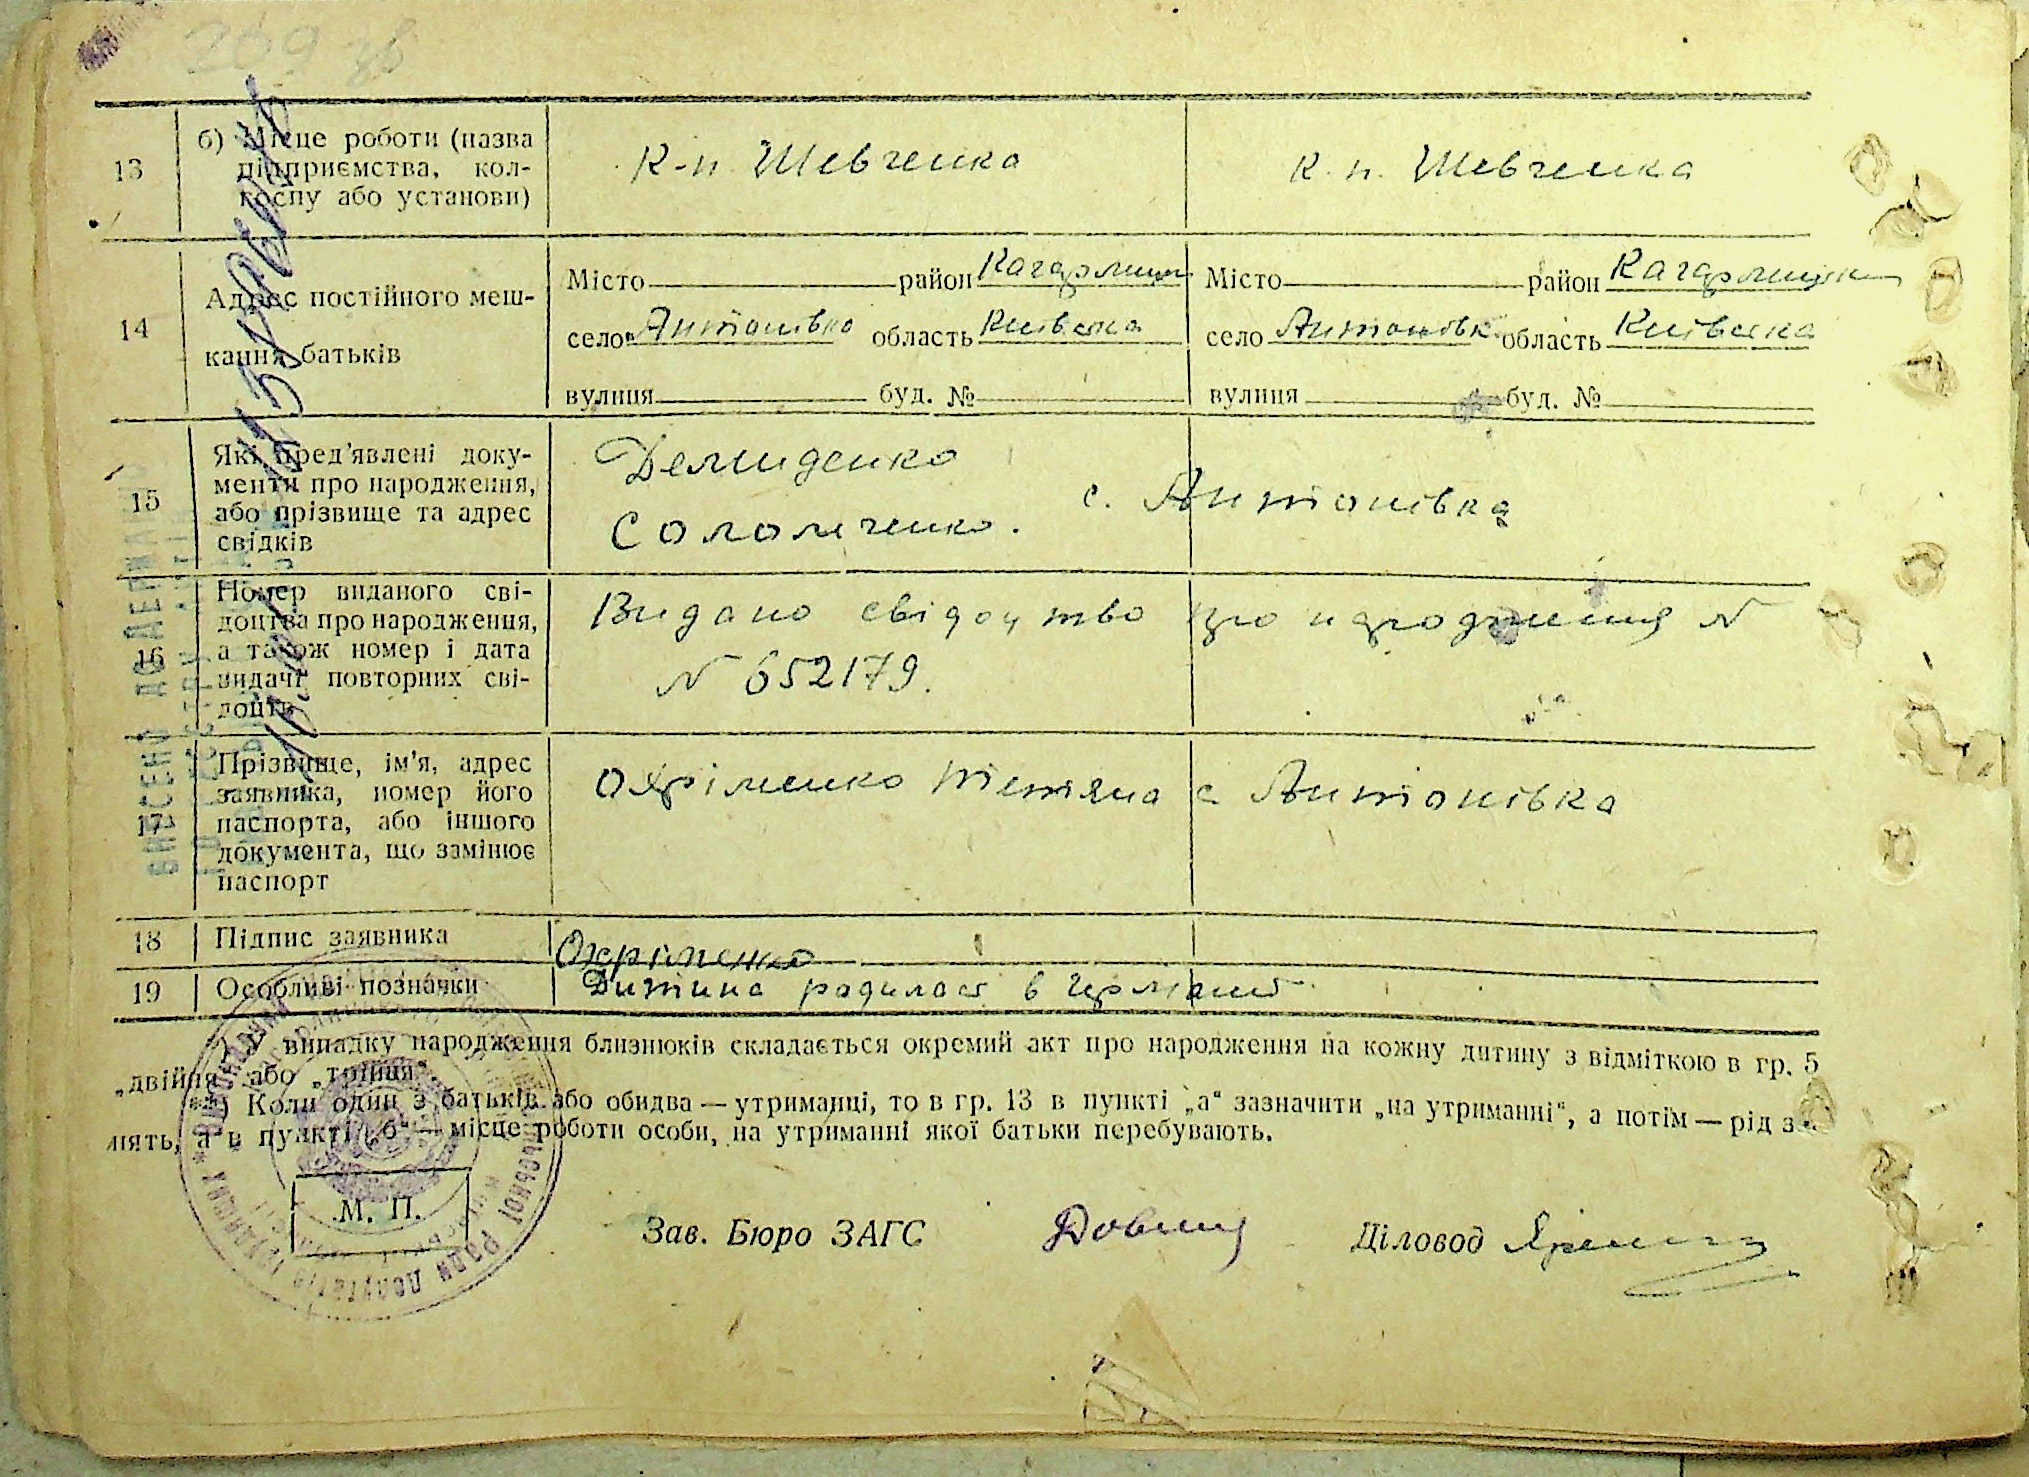 209 зв
13
б) Місце роботи (назва
підприємства, кол-
госпу або установи)
К-п. Шевченка
К. п. Шевченка
14
Адрес постійного меш-
кання батьків
Місто район Кагарлицьк
село Антонівка область Київська
вулиця буд. №
Місто район Кагарлицьк
село Антонівк область Київська
вулиця буд. №
15
Які пред'явлені доку-
менти про народження,
або прізвище та адрес
свідків
Демиденко
Соломченко.
с. Антонівка
16
Номер виданого сві-
доцтва про народження,
а також номер і дата
видачі повторних сві-
доцтв
Видано свідоцтво про народження №
№ 652179.
17
Прізвище, ім'я, адрес
заявника, номер його
паспорта, або іншого
документа, що замінює
паспорт
Охріменко Тетяна с Антонівка
18
Підпис заявника
Охріменко
19
Особливі позначки
Дитина родилась в Германії
*) У випадку народження близнюків складається окремий акт про народження на кожну дитину з відміткою в гр. 5
„двійня" або „трійня".
**) Коли один з батьків або обидва — утриманці, то в гр. 13 в пункті „а" зазначити „на утриманні", а потім — рід з
нять, а в пункті „б" — місце роботи особи, на утриманні якої батьки перебувають.
М. П.
Зав. Бюро ЗАГС
Діловод
ВНЕСЕНО ДО ДЕРЖАВНО